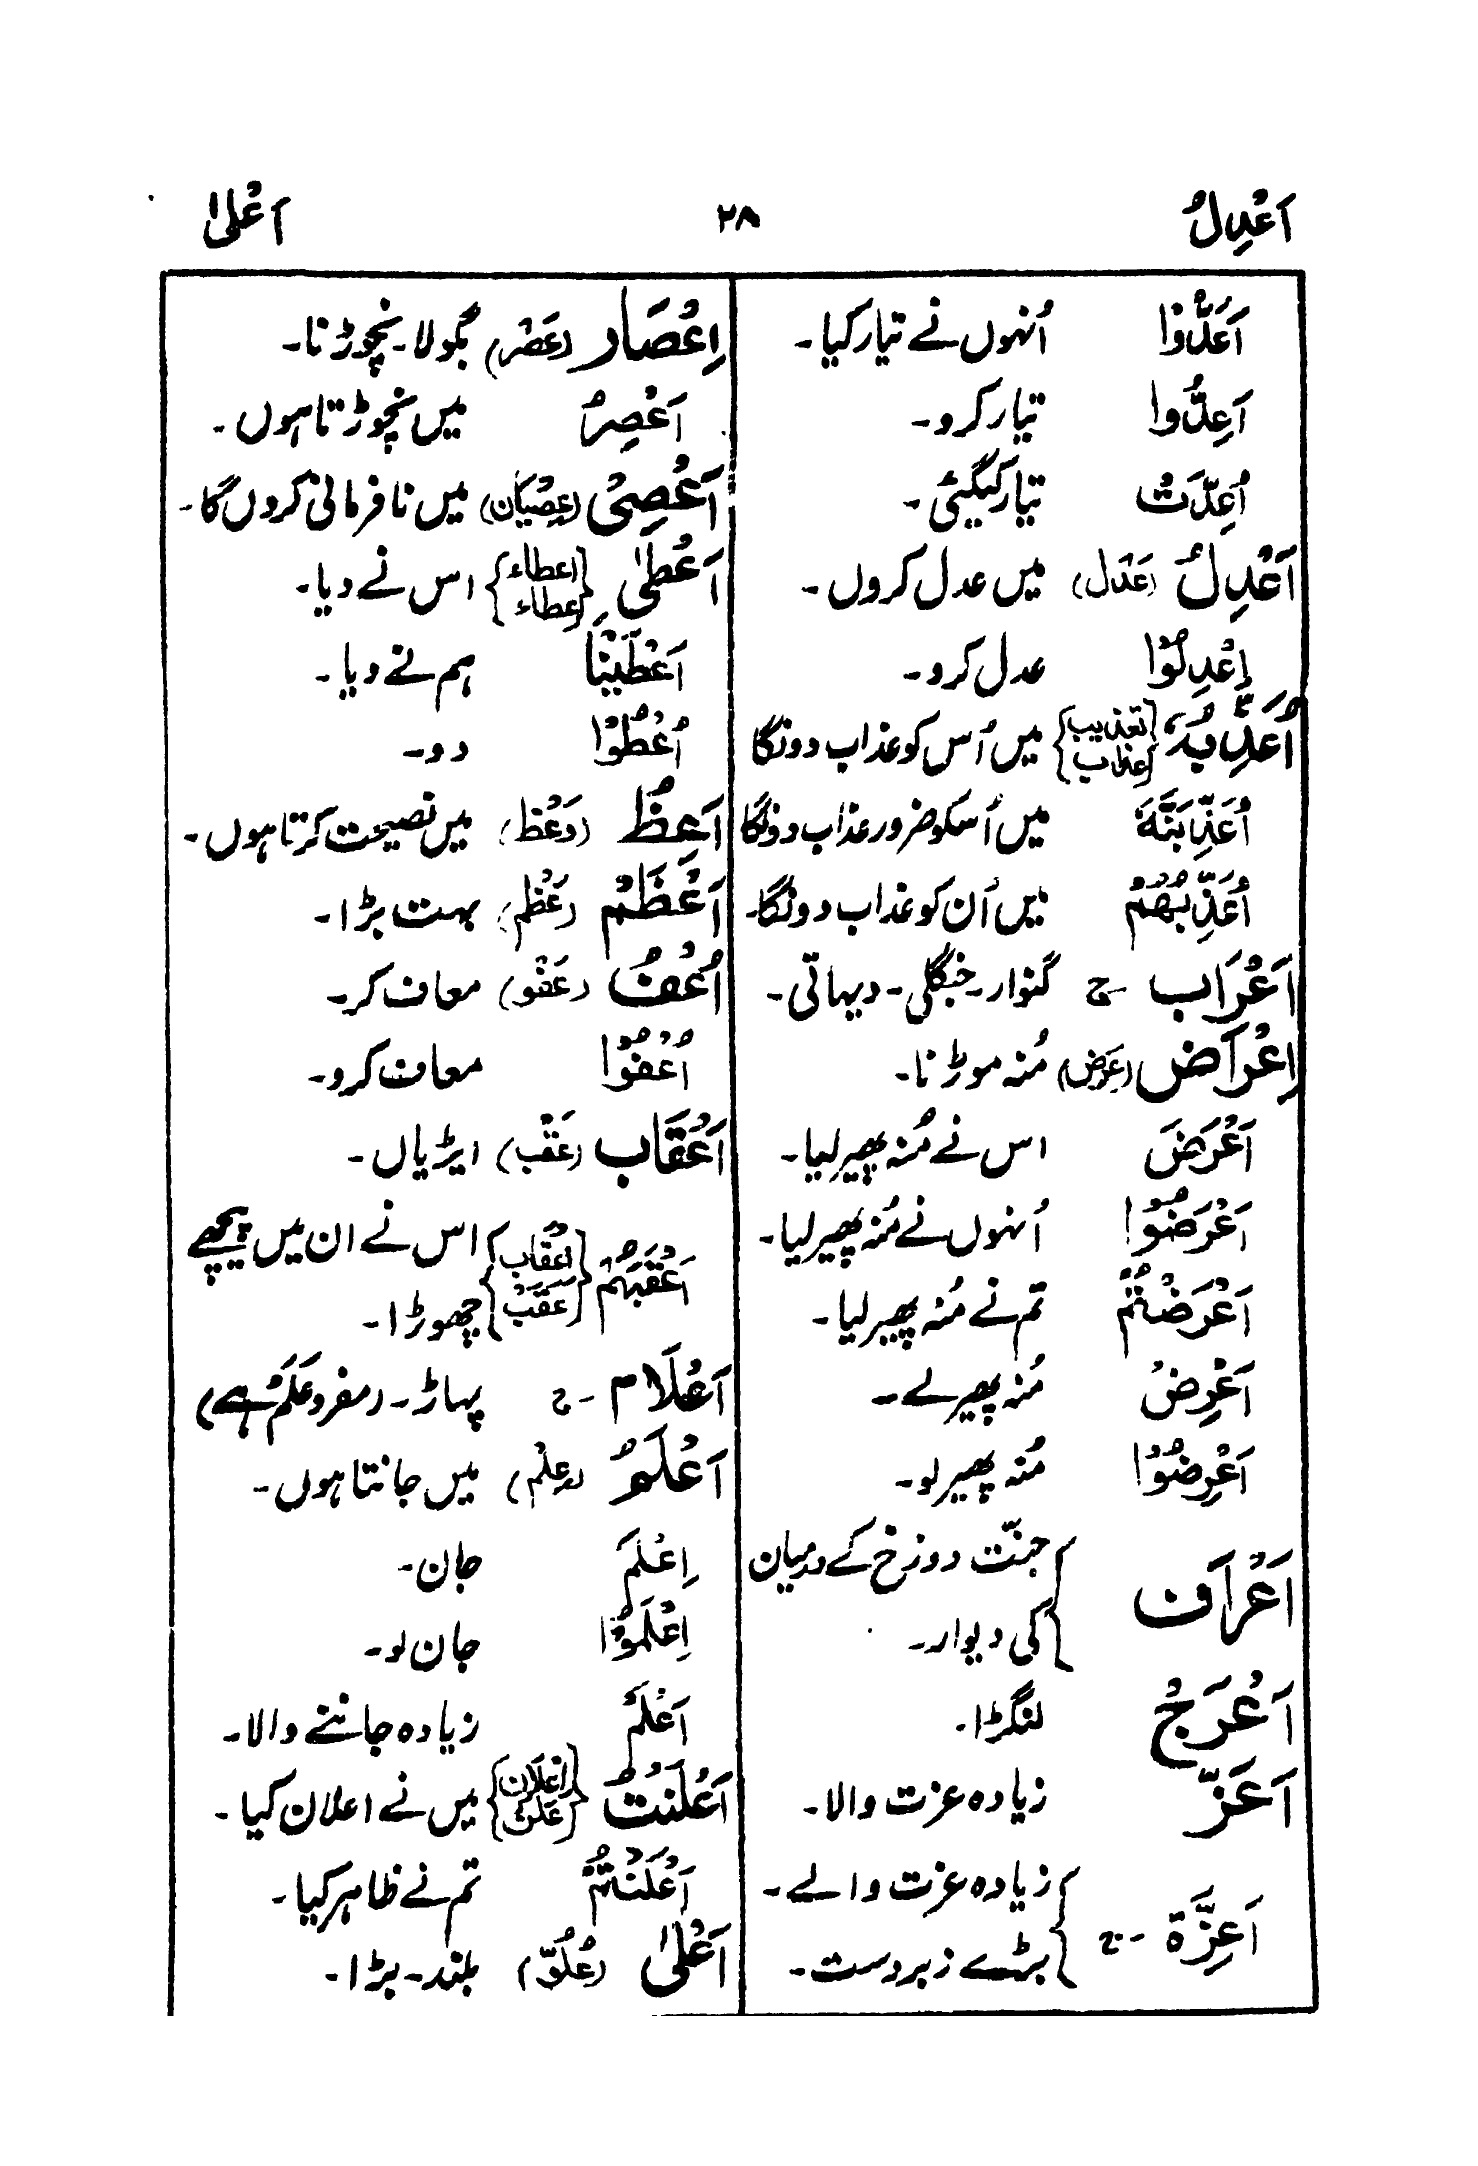 اَعْدِلُ ۲۸ اَعْلیٰ
اَعَدُّوْا اُنہوں نے تیار کیا۔
اَعِدُّوا تیار کرو۔
اُعِدَّتْ تیار کیگئی۔
اَعْدِلُ (عَدْل) میں عدل کروں۔
اِعْدِلُوْا عدل کرو۔
اُعَذِّبُہٗ {تعذیب عذاب} میں اُس کو عذاب دونگا
اُعَذِّبَنَّہٗ میں اُسکو ضرور عذاب دونگا
اُعَذِّبُهُمْ میں اُن کو عذاب دونگا۔
اَعْرَاب ۔ج گنوار۔ جنگلی۔ دیہاتی۔
اِعْرَاض (عَرَض) مُنہ موڑنا۔
اَعْرَضَ اس نے مُنہ پھیر لیا۔
اَعْرَضُوْا اُنہوں نے مُنہ پھیر لیا۔
اَعْرَضْتُمْ تم نے مُنہ پھیر لیا۔
اَعْرِضْ مُنہ پھیر لے۔
اَعْرِضُوْا مُنہ پھیر لو۔
اَعْرَاف {جنّت دوزخ کے درمیان
کی دیوار۔
اَعْرَجُ لنگڑا۔
اَعَزّ زیادہ عزت والا۔
اَعِزَّة ۔ج {زیادہ عزت والے۔
بڑے زبردست۔
اِعْصَار (عَصْر) بگولا۔ نچوڑنا۔
اَعْصِرُ میں نچوڑتا ہوں۔
اَعْصِیْ (عِصْیَان) میں نافرمانی کروں گا۔
اَعْطٰی {اعطاء عطاء} اس نے دیا۔
اَعْطَيْنَا ہم نے دیا۔
اُعْطُوْا دو۔
اَعِظُ (وَعْظ) میں نصیحت کرتا ہوں۔
اَعْظَمُ (عَظْم) بہت بڑا۔
اُعْفُ (عَفْو) معاف کر۔
اُعْفُوْا معاف کرو۔
اَعْقَاب (عَقْب) ایڑیاں۔
اَعْقَبَهُمْ {اعْقَاب عَقْبْ} اس نے ان میں پیچھے
چھوڑا۔
اَعْلَام ۔ج پہاڑ۔ (مفرد عَلَمْ ہے)
اَعْلَمُ (عِلْم) میں جانتا ہوں۔
اِعْلَمْ جان۔
اِعْلَمُوْا جان لو۔
اَعْلَمُ زیادہ جاننے والا۔
اَعْلَنْتُ {اعْلَان عَلَن} میں نے اعلان کیا۔
اَعْلَنْتُمْ تم نے ظاہر کیا۔
اَعْلیٰ (عُلُوّ) بلند۔ بڑا۔